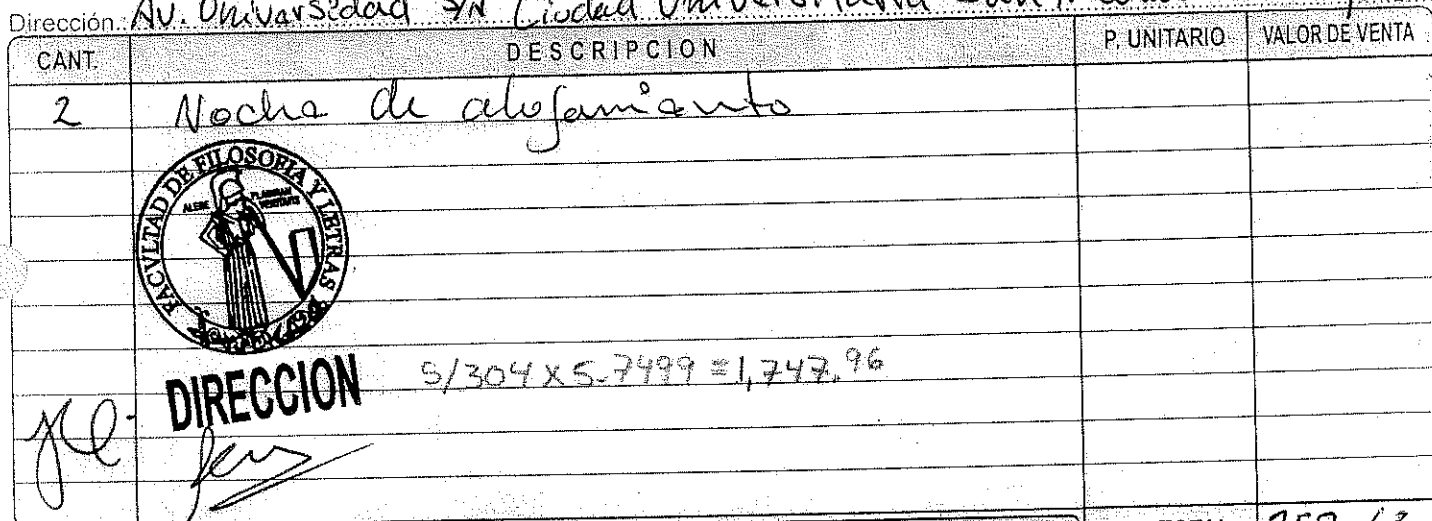 Dirección: Av. Universidad S/N Ciudad Universitaria
CANT. DESCRIPCION P. UNITARIO VALOR DE VENTA
2 Noche de alojamiento
FACVLTAD DE FILOSOFIA Y LETRAS
ALERE FLAMMAM VERITATIS
DIRECCION
S/304 x 5.7499 = 1,747.96